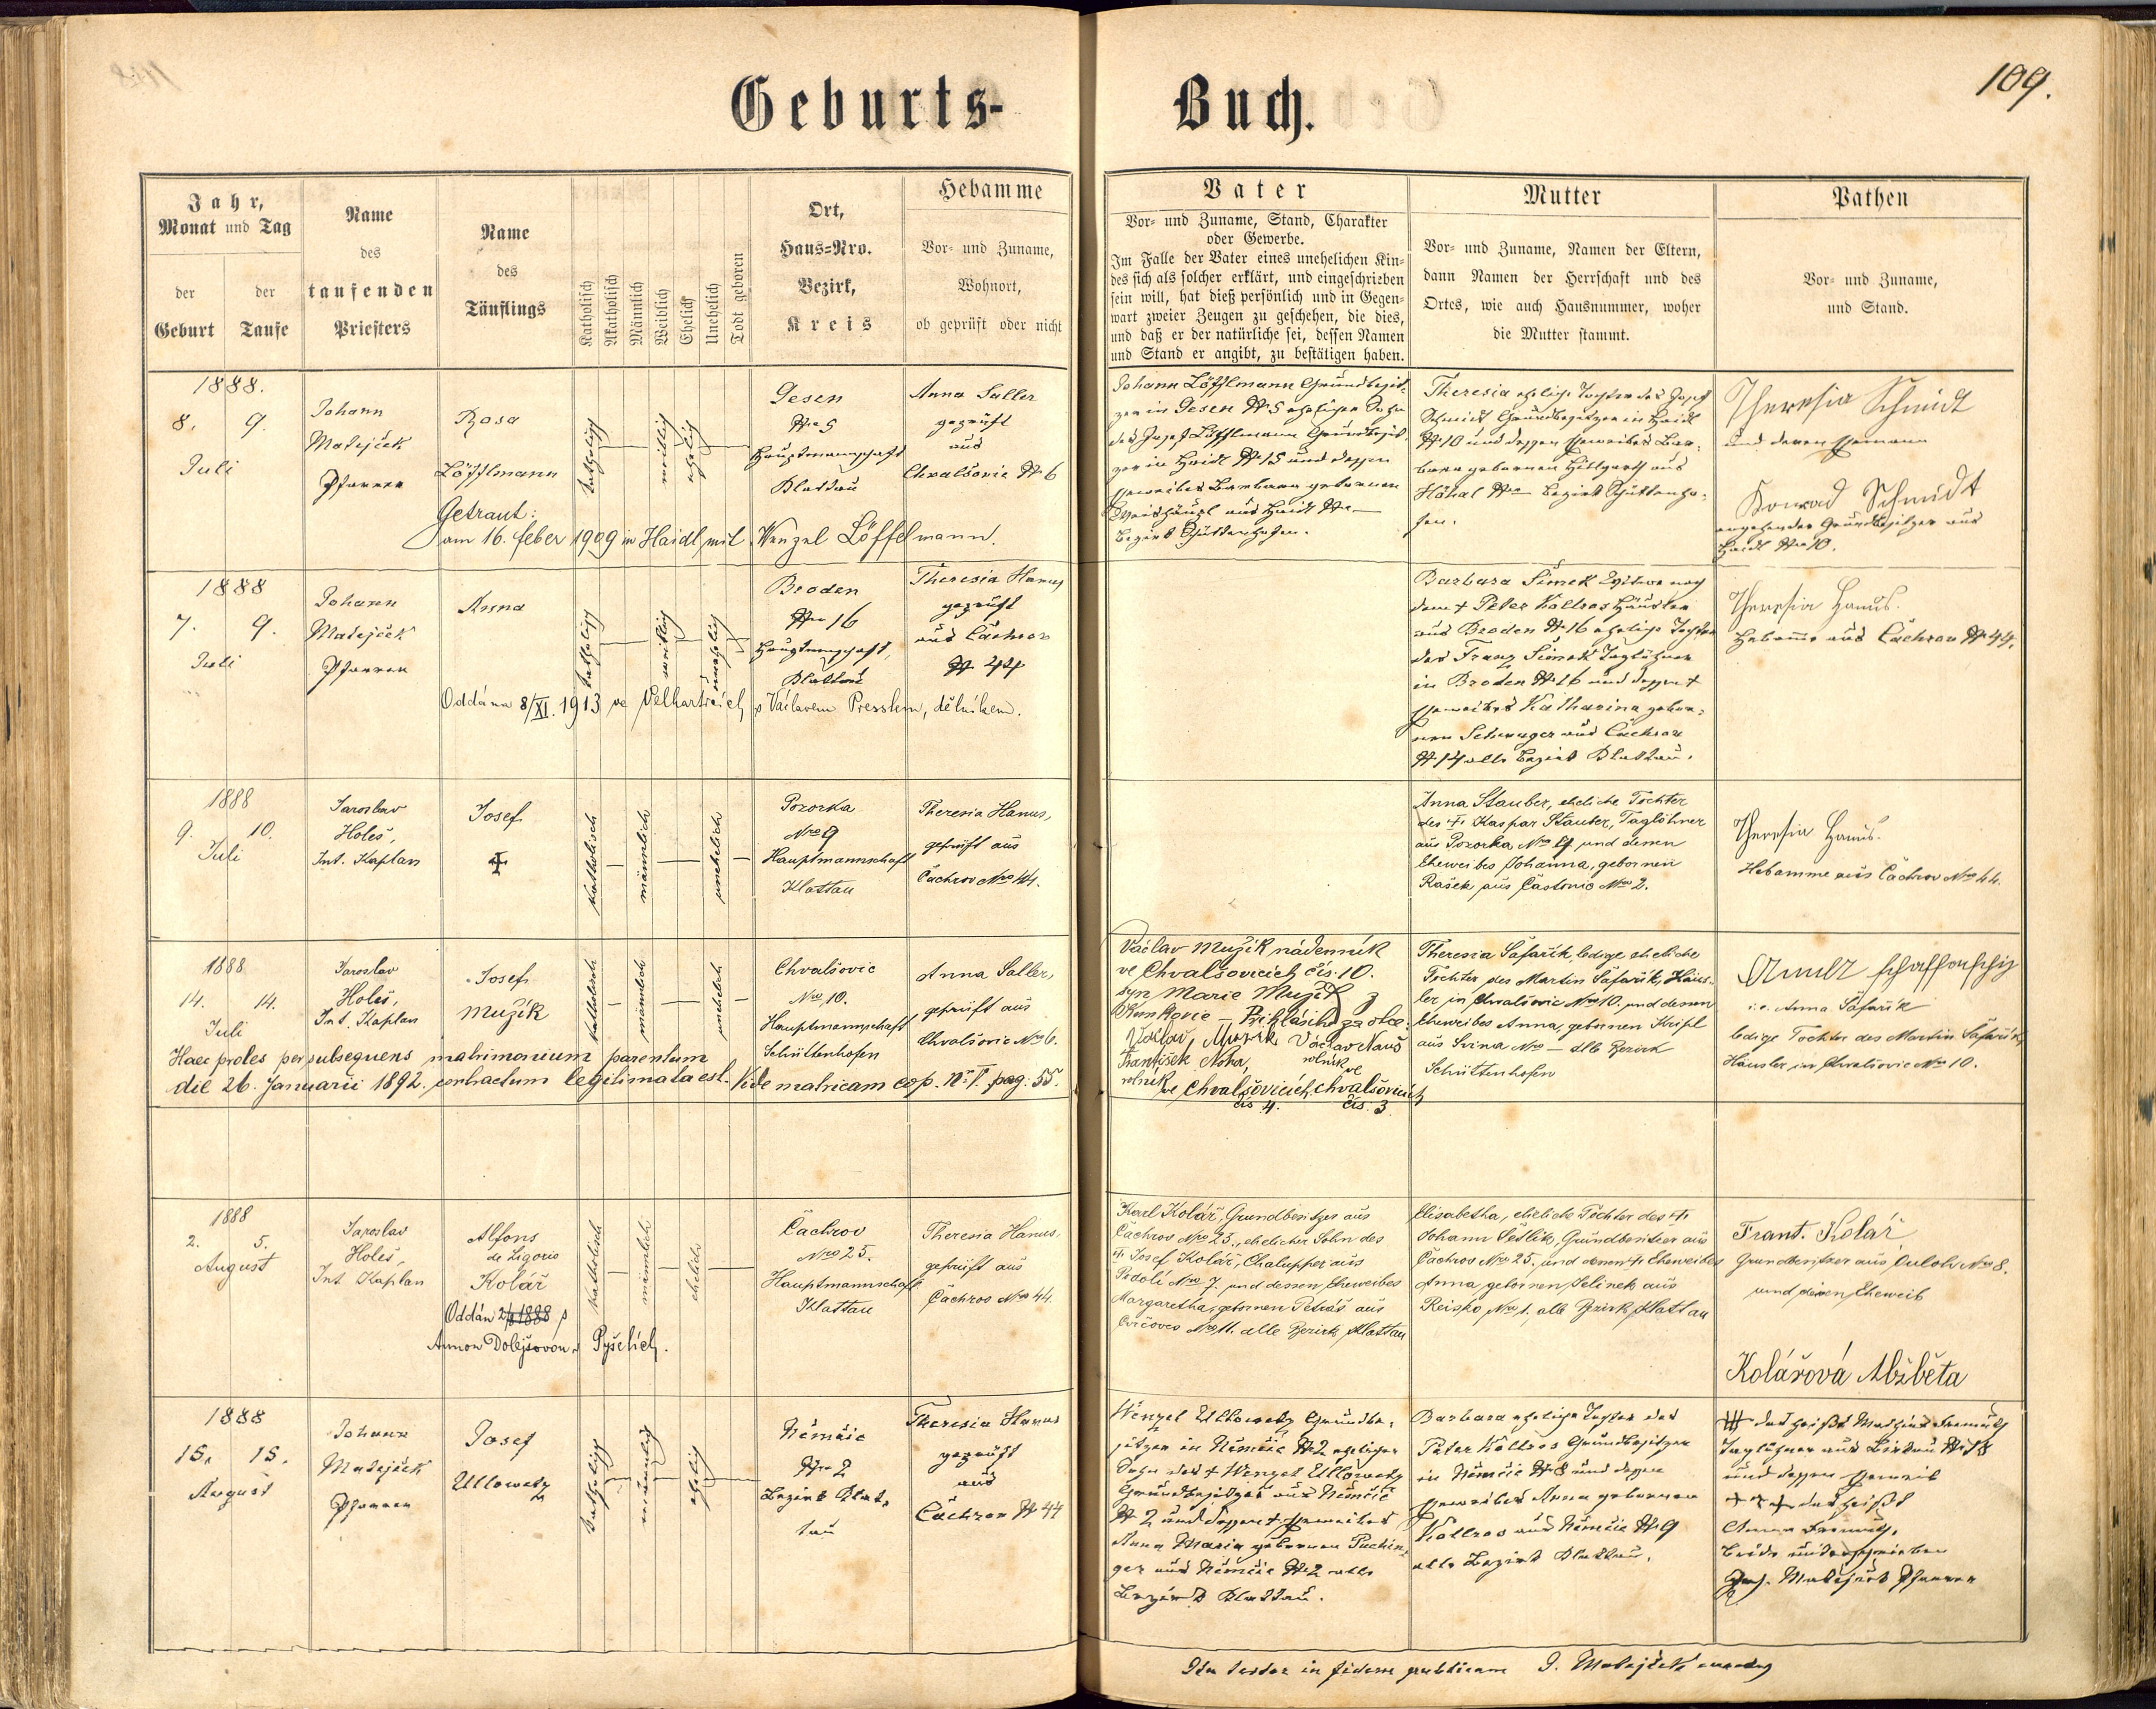 109.
Geburts- Buch.
Jahr,
Monat und Tag
der Geburt
der Taufe
Name
des
taufenden
Priesters
Name
des
Täuflings
Katholisch
Akatholisch
Männlich
Weiblich
Ehelich
Unehelich
Todt geboren
Ort,
Haus=Nro.
Bezirk,
Kreis
Hebamme
Vor- und Zuname,
Wohnort,
ob geprüft oder nicht
Vater
Vor- und Zuname, Stand, Charakter
oder Gewerbe.
Im Falle der Vater eines unehelichen Kin-
des sich als solcher erklärt, und eingeschrieben
sein will, hat dieß persönlich und in Gegen-
wart zweier Zeugen zu geschehen, die dies,
und daß er der natürliche sei, dessen Namen
und Stand er angibt, zu bestätigen haben.
Mutter
Vor- und Zuname, Namen der Eltern,
dann Namen der Herrschaft und des
Ortes, wie auch Hausnummer, woher
die Mutter stammt.
Pathen
Vor- und Zuname,
und Stand.
1888.
8. 9.
Juli
Johann
Matejček
Pfarrer
Rosa
Löfflmann
Getraut:
am 16. feber 1909 in Haidl mit Wenzel Löffelmann.
katholisch
weiblich
ehelich
Gesen
Nro 5
Hauptmannschaft
Klattau
Anna Saller
geprüft
aus
Chvalšovic No 6
Johann Löfflmann Grundbesit-
zer in Gesen No 5 ehelicher Sohn
des Josef Löfflmann Grundbesit-
zer in Haidl No 15 und dessen
Eheweibes Barbara gebornen
aus Haidl Nro —
Bezirk Schüttenhofen.
Theresia eheliche Tochter des Josef
Schmidt Grundbesitzer in Haidl
No 10 und dessen Eheweibes Bar-
bara gebornen aus
Nro — Bezirk Schüttenho-
fen.
Theresia Schmidt
und deren Ehemann
Konrad Schmidt
angehender Grundbesitzer aus
Haidl Nro 10.
1888
7. 9.
Juli
Johann
Matejček
Pfarrer
Anna
katholisch
weiblich
unehelich
Oddána 8/XI. 1913 ve Velharticích s Václavem Presslem, dělníkem.
Broden
Nro 16
Hauptmannschaft,
Klattau
Theresia Hanus
geprüft
aus Čachrov
No 44
Barbara Šimek Witwe nach
dem † Peter Kollros Häusler
aus Broden No 16 eheliche Tochter
des Franz Šimek Taglöhner
in Broden No 16 und dessen †
Eheweibes Katharina gebor-
nen Schwager aus Čachrov
No 14 alle Bezirk Klattau.
Theresia Hanus.
Hebamme aus Čachrov No 44.
1888
9. 10.
Juli
Jaroslav
Holeš,
Int. Kaplan
Josef
katholisch
männlich
unehelich
Pozorka
Nro 9
Hauptmannschaft
Klattau
Theresia Hanus,
geprüft aus
Čachrov Nro 44.
Anna Stauber, eheliche Tochter
des † Kaspar Stauber, Taglöhner
aus Pozorka Nro 9 und dessen
Eheweibes Johanna, gebornen
Rašek, aus Častonic Nro 2.
Theresia Hanus.
Hebamme aus Čachrov Nro 44.
1888
14. 14.
Juli
Jaroslav
Holeš,
Int. Kaplan
Josef
Mužík
katholisch
männlich
unehelich
Chvalšovic
Nro 10.
Hauptmannschaft
Schüttenhofen
Anna Saller,
geprüft aus
Chvalšovic No 6.
Haec proles per subsequens matrimonium parentum
die 26. Januarii 1892. contractum legitimata est. Vide matricam cop. No I. pag. 55.
Václav Mužík nádenník
ve Chvalšovicích čís. 10.
syn Marie Mužík z
Kunkovic — Přihlásil se za otce:
Václav Mužík
František Noha, rolník ve Chvalšovicích čís 4.
Václav Nauš rolník ve Chvalšovicích čís. 3.
Theresia Šafařík, ledige eheliche
Tochter des Martin Šafařík, Häus-
ler in Chvalšovic Nro 10. und dessen
Eheweibes Anna, gebornen Kripl
aus Svina Nro — alle Bezirk
Schüttenhofen
i. e. Anna Šafařík
ledige Tochter des Martin Šafařík,
Häusler in Chvalšovic Nro 10.
1888
2. 5.
August
Jaroslav
Holeš,
Int. Kaplan
Alfons
de Ligorio
Kolář
Oddán s
Annou Dolejšovou v Pyšelích.
katholisch
männlich
ehelich
Čachrov
Nro 25.
Hauptmannschaft
Klattau
Theresia Hanus,
geprüft aus
Čachrov Nro 44.
Karl Kolář, Grundbesitzer aus
Čachrov Nro 25., ehelicher Sohn des
† Josef Kolář, Chalupper aus
Podolí Nro 7. und dessen Eheweibes
Margaretha, gebornen Petráš aus
Nro 11. alle Bezirk Klattau
Elisabetha, eheliche Tochter des †
Johann Sedlik, Grundbesitzer aus
Čachrov Nro 25. und dessen † Eheweibes
Anna, gebornen Jelinek aus
Reisko Nro 1. alle Bezirk Klattau
Frant. Kolář
Grundbesitzer aus Nro 8.
und dessen Eheweib
Kolářová Alžběta
1888
15. 15.
August
Johann
Matejček
Pfarrer
Josef
Ullowetz
katholisch
männlich
ehelich
Němčic
Nro 2
Bezirk Klat-
tau
Theresia Hanus
geprüft
aus
Čachrov No 44
Wenzel Ullowetz Grundbe-
sitzer in Němčic No 2 ehelicher
Sohn des † Wenzel Ullowetz
Grundbesitzer aus Němčic
No 2 und dessen † Eheweibes
Anna Maria gebornen Puchin-
ger aus Němčic No 2 alle
Bezirk Klattau.
Barbara eheliche Tochter des
Peter Kollros Grundbesitzer
in Němčic No 8 und dessen
Eheweibes Anna gebornen
Kollros aus Němčic No 9
alle Bezirk Klattau.
††† das heißt Mathias
Taglöhner aus No 18
und dessen Eheweib
††† das heißt
Anna
beide unterschrieben
Joh. Matejček Pfarrer
Ita testor in fidem publicam J. Matejček